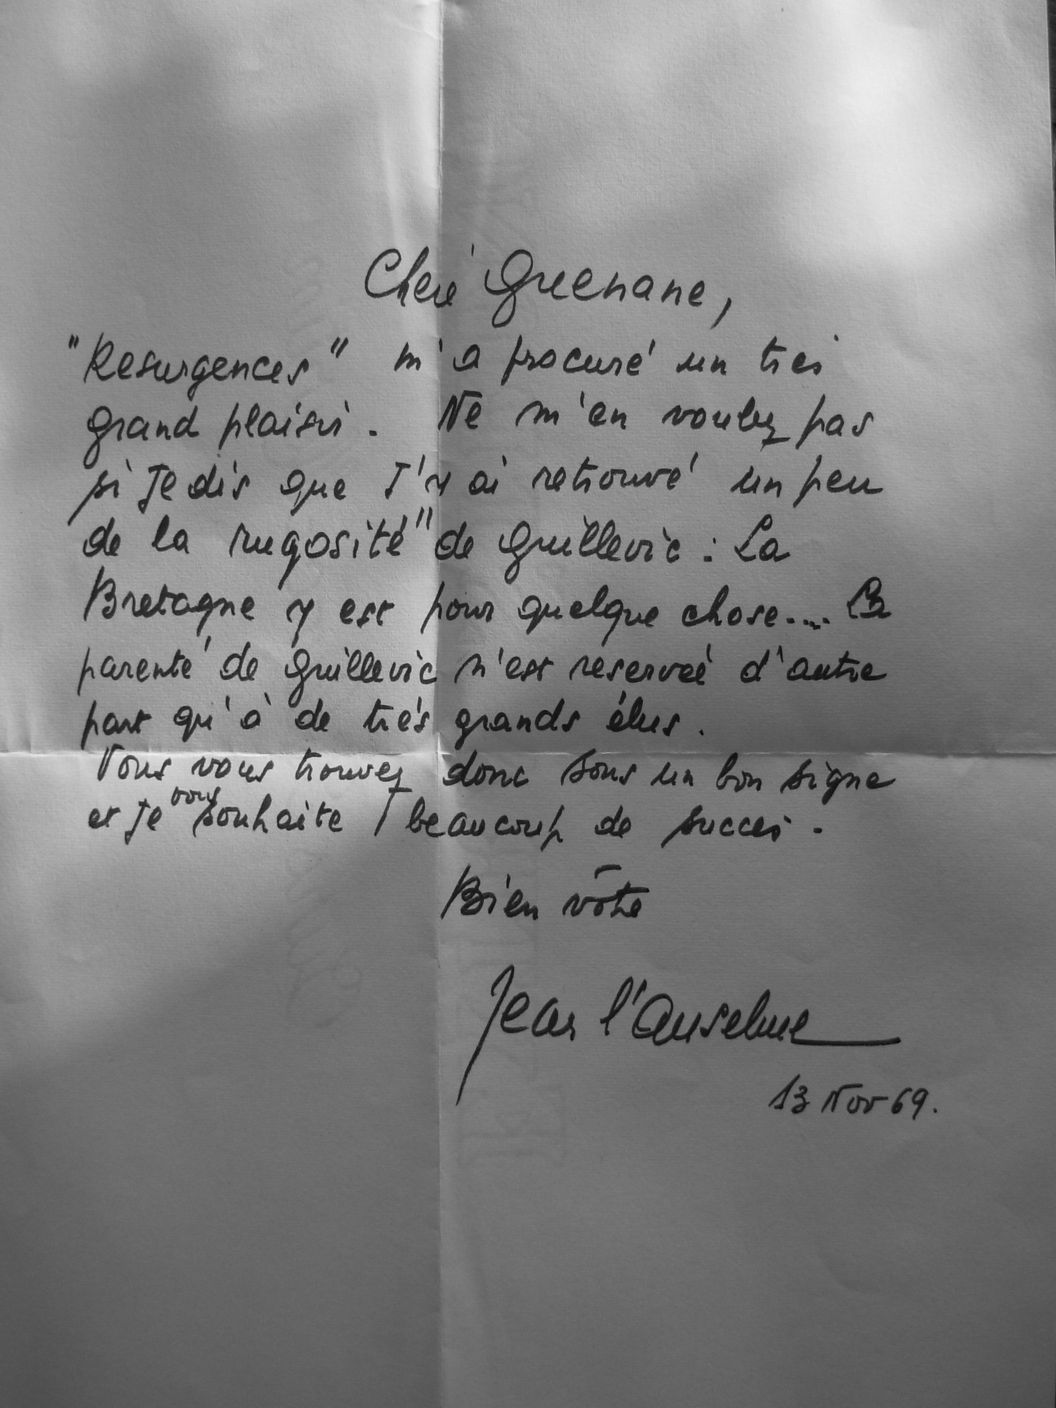 Chère Guénane,
"Résurgences" m'a procuré un très
grand plaisir. Ne m'en voulez pas
si je dis que j'y ai retrouvé un peu
de la rugosité" de Guillevic : La
Bretagne y est pour quelque chose.... La
parenté de Guillevic n'est réservée d'autre
part qu'à de très grands élus.
Vous vous trouvez donc sous un bon signe
et je vous souhaite beaucoup de succès.
Bien vôtre
Jean l'Anselme
13 Nov 69.